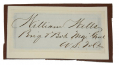 William Wells
Brig & Bvt Maj Genl
U.S. Vols